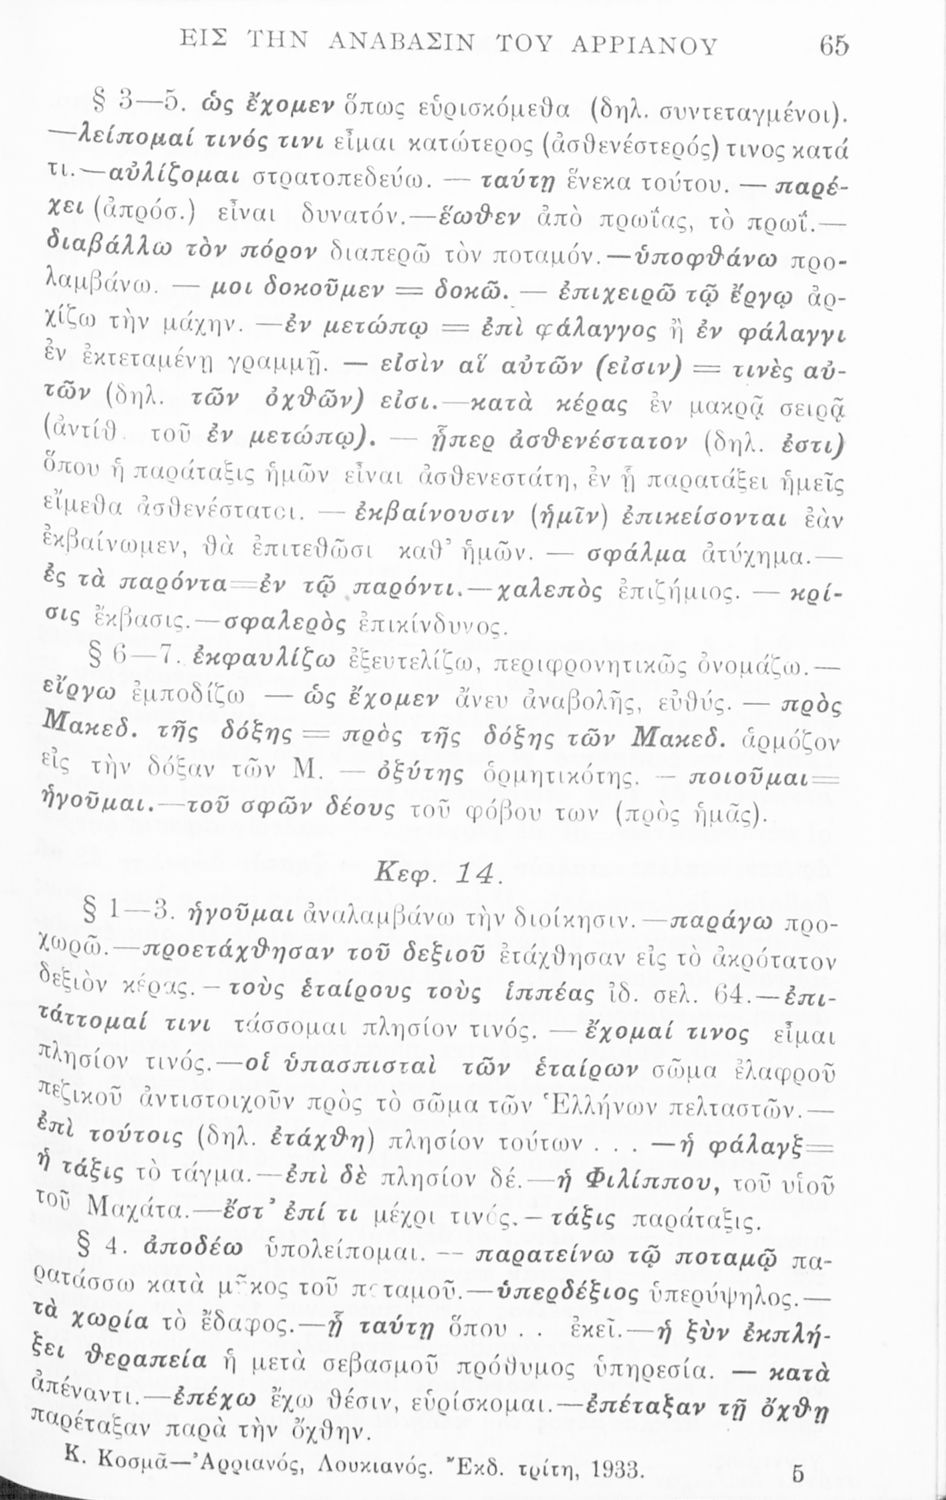 ΕΙΣ ΤΗΝ ΑΝΑΒΑΣΙΝ ΤΟΥ ΑΡΡΙΑΝΟΥ 65
§ 3—5. ὡς ἔχομεν ὅπως εὑρισκόμεθα (δηλ. συντεταγμένοι).
—λείπομαί τινός τινι εἶμαι κατώτερος (ἀσθενέστερός) τινος κατά
τι.—αὐλίζομαι στρατοπεδεύω. — ταύτῃ ἕνεκα τούτου. — παρέ-
χει (ἀπρόσ.) εἶναι δυνατόν.—ἕωθεν ἀπὸ πρωΐας, τὸ πρωΐ.—
διαβάλλω τὸν πόρον διαπερῶ τὸν ποταμόν.—ὑποφθάνω προ-
λαμβάνω. — μοι δοκοῦμεν = δοκῶ. — ἐπιχειρῶ τῷ ἔργῳ ἀρ-
χίζω τὴν μάχην. —ἐν μετώπῳ = ἐπὶ φάλαγγος ἢ ἐν φάλαγγι
ἐν ἐκτεταμένῃ γραμμῇ. — εἰσὶν αἵ αὐτῶν (εἰσιν) = τινὲς αὐ-
τῶν (δηλ. τῶν ὀχθῶν) εἰσι.—κατὰ κέρας ἐν μακρᾷ σειρᾷ
(ἀντίθ. τοῦ ἐν μετώπῳ). — ᾗπερ ἀσθενέστατον (δηλ. ἐστι)
ὅπου ἡ παράταξις ἡμῶν εἶναι ἀσθενεστάτη, ἐν ᾗ παρατάξει ἡμεῖς
εἴμεθα ἀσθενέστατοι. — ἐκβαίνουσιν (ἡμῖν) ἐπικείσονται ἐὰν
ἐκβαίνωμεν, θὰ ἐπιτεθῶσι καθ' ἡμῶν. — σφάλμα ἀτύχημα.—
ἐς τὰ παρόντα=ἐν τῷ παρόντι.—χαλεπὸς ἐπιζήμιος. — κρί-
σις ἔκβασις.—σφαλερὸς ἐπικίνδυνος.
§ 6—7. ἐκφαυλίζω ἐξευτελίζω, περιφρονητικῶς ὀνομάζω.—
εἴργω ἐμποδίζω — ὡς ἔχομεν ἄνευ ἀναβολῆς, εὐθύς. — πρὸς
Μακεδ. τῆς δόξης = πρὸς τῆς δόξης τῶν Μακεδ. ἁρμόζον
εἰς τὴν δόξαν τῶν Μ. — ὀξύτης ὁρμητικότης. — ποιοῦμαι=
ἡγοῦμαι.—τοῦ σφῶν δέους τοῦ φόβου των (πρὸς ἡμᾶς).
Κεφ. 14.
§ 1—3. ἡγοῦμαι ἀναλαμβάνω τὴν διοίκησιν.—παράγω προ-
χωρῶ.—προετάχθησαν τοῦ δεξιοῦ ἐτάχθησαν εἰς τὸ ἀκρότατον
δεξιὸν κέρας.—τοὺς ἑταίρους τοὺς ἱππέας ἰδ. σελ. 64.—ἐπι-
τάττομαί τινι τάσσομαι πλησίον τινός. — ἔχομαί τινος εἶμαι
πλησίον τινός.—οἱ ὑπασπισταὶ τῶν ἑταίρων σῶμα ἐλαφροῦ
πεζικοῦ ἀντιστοιχοῦν πρὸς τὸ σῶμα τῶν Ἑλλήνων πελταστῶν.—
ἐπὶ τούτοις (δηλ. ἐτάχθη) πλησίον τούτων . . . —ἡ φάλαγξ=
ἡ τάξις τὸ τάγμα.—ἐπὶ δὲ πλησίον δέ.—ἡ Φιλίππου, τοῦ υἱοῦ
τοῦ Μαχάτα.—ἔστ' ἐπί τι μέχρι τινός.—τάξις παράταξις.
§ 4. ἀποδέω ὑπολείπομαι. — παρατείνω τῷ ποταμῷ πα-
ρατάσσω κατὰ μῆκος τοῦ ποταμοῦ.—ὑπερδέξιος ὑπερύψηλος.—
τὰ χωρία τὸ ἔδαφος.—ᾗ ταύτῃ ὅπου . . ἐκεῖ.—ἡ ξὺν ἐκπλή-
ξει θεραπεία ἡ μετὰ σεβασμοῦ πρόθυμος ὑπηρεσία. — κατὰ
ἀπέναντι.—ἐπέχω ἔχω θέσιν, εὑρίσκομαι.—ἐπέταξαν τῇ ὄχθῃ
παρέταξαν παρὰ τὴν ὄχθην.
Κ. Κοσμᾶ—Ἀρριανός, Λουκιανός. Ἔκδ. τρίτη, 1933. 5